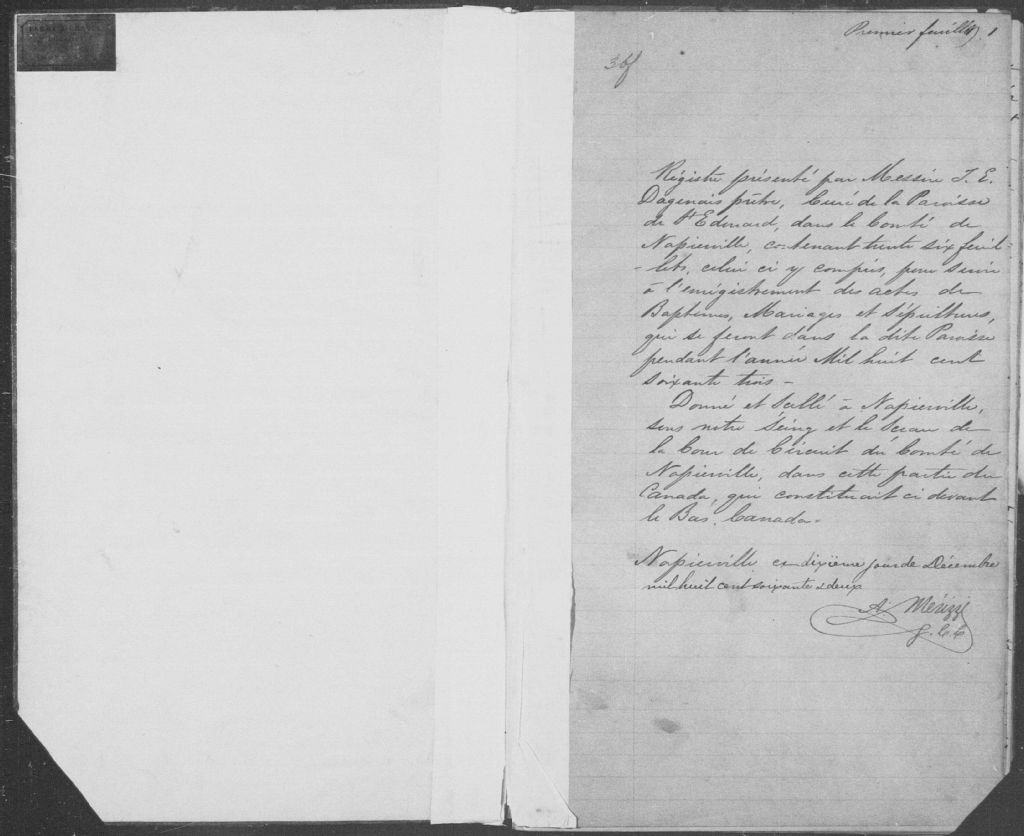 Premier feuillet 1
36f
Régistre présenté par Messire J. E.
Dagenais prêtre, Curé de la Paroisse
de St Edouard, dans le Comté de
Napierville, contenant trente six feuil-
-lets, celui ci y compris, pour servir
à l'enrégistrement des actes de
Baptêmes, Mariages et Sépultures,
qui se feront dans la dite Paroisse
pendant l'année Mil huit cent
soixante trois -
Donné et Scellé à Napierville,
sous notre Seing et le Sceau de
la Cour de Circuit du Comté de
Napierville, dans cette partie du
Canada, qui constituait ci devant
le Bas Canada.
Napierville ce dixième jour de Décembre
mil huit cent soixante & deux
A. Mérizzi
G. C. C.